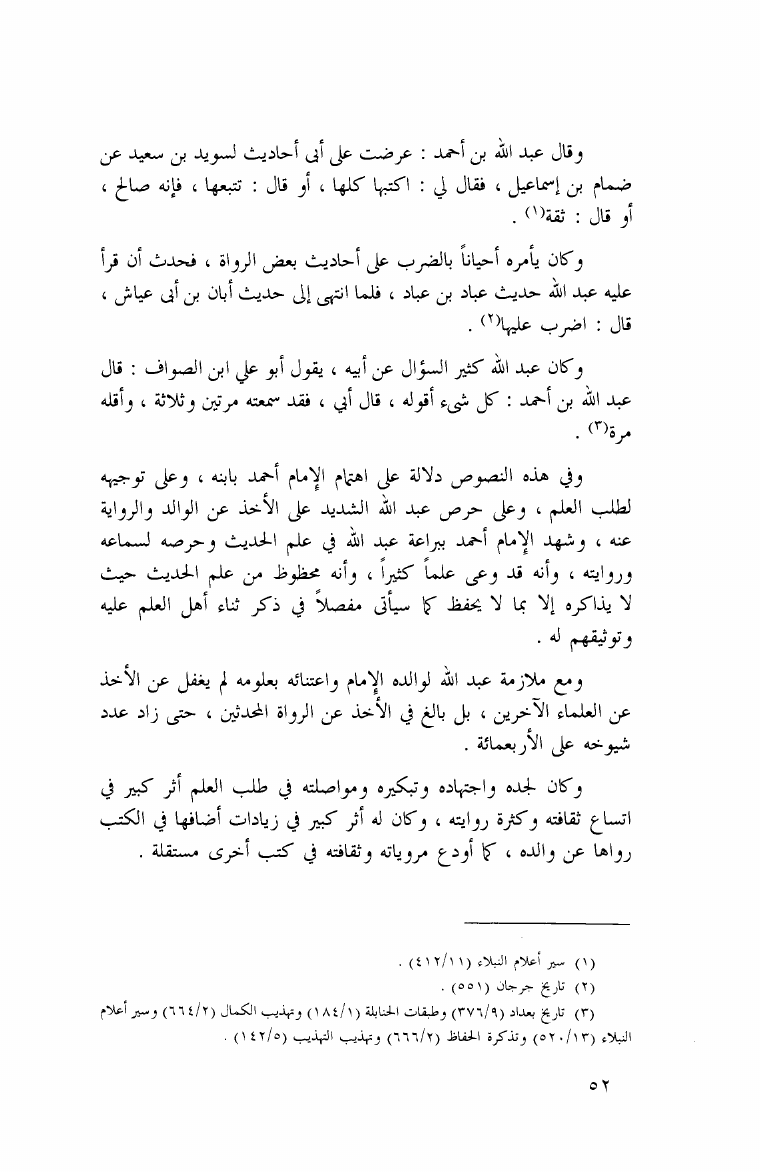 وقال عبد الله بن أحمد : عرضت على أبى أحاديث لسويد بن سعيد عن
ضمام بن إسماعيل ، فقال لي : اكتبها كلها ، أو قال : تتبعها ، فإنه صالح ،
أو قال : ثقة(١) .
وكان يأمره أحياناً بالضرب على أحاديث بعض الرواة ، فحدث أن قرأ
عليه عبد الله حديث عباد بن عباد ، فلما انتهى إلى حديث أبان بن أبى عياش ،
قال : اضرب عليها(٢) .
وكان عبد الله كثير السؤال عن أبيه ، يقول أبو علي ابن الصواف : قال
عبد الله بن أحمد : كل شىء أقوله ، قال أبي ، فقد سمعته مرتين وثلاثة ، وأقله
مرة(٣) .
وفي هذه النصوص دلالة على اهتمام الإمام أحمد بابنه ، وعلى توجيهه
لطلب العلم ، وعلى حرص عبد الله الشديد على الأخذ عن الوالد والرواية
عنه ، وشهد الإمام أحمد ببراعة عبد الله في علم الحديث وحرصه لسماعه
وروايته ، وأنه قد وعى علماً كثيراً ، وأنه محظوظ من علم الحديث حيث
لا يذاكره إلا بما لا يحفظ كما سيأتى مفصلاً في ذكر ثناء أهل العلم عليه
وتوثيقهم له .
ومع ملازمة عبد الله لوالده الإمام واعتنائه بعلومه لم يغفل عن الأخذ
عن العلماء الآخرين ، بل بالغ في الأخذ عن الرواة المحدثين ، حتى زاد عدد
شيوخه على الأربعمائة .
وكان لجده واجتهاده وتبكيره ومواصلته في طلب العلم أثر كبير في
اتساع ثقافته وكثرة روايته ، وكان له أثر كبير في زيادات أضافها في الكتب
رواها عن والده ، كما أودع مروياته وثقافته في كتب أخرى مستقلة .
(١) سير أعلام النبلاء (٤١٢/١١) .
(٢) تاريخ جرجان (٥٥١) .
(٣) تاريخ بغداد (٣٧٦/٩) وطبقات الحنابلة (١٨٤/١) وتهذيب الكمال (٦٦٤/٢) وسير أعلام
النبلاء (٥٢٠/١٣) وتذكرة الحفاظ (٦٦٦/٢) وتهذيب التهذيب (١٤٢/٥) .
٥٢